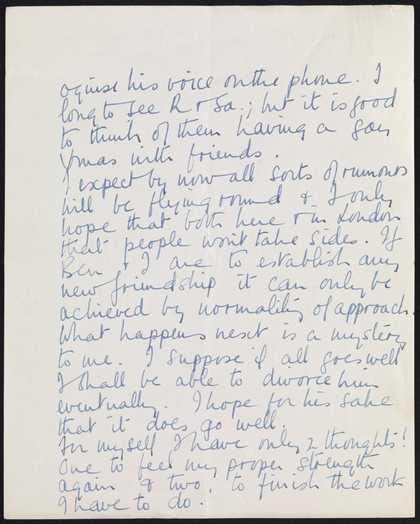 ognise his voice on the phone. I
long to see R & Sa.; but it is good
to think of them having a gay
Xmas with friends.
I expect by now all sorts of rumours
will be flying round & I only
hope that both here & in London
that people won't take sides. If
Ben & I are to establish any
new friendship it can only be
achieved by normality of approach.
What happens next is a mystery
to me. I suppose if all goes well
I shall be able to divorce him
eventually. I hope for his sake
that it does go well.
For myself I have only 2 thoughts!
One to feel my proper strength
again & two, to finish the work
I have to do.